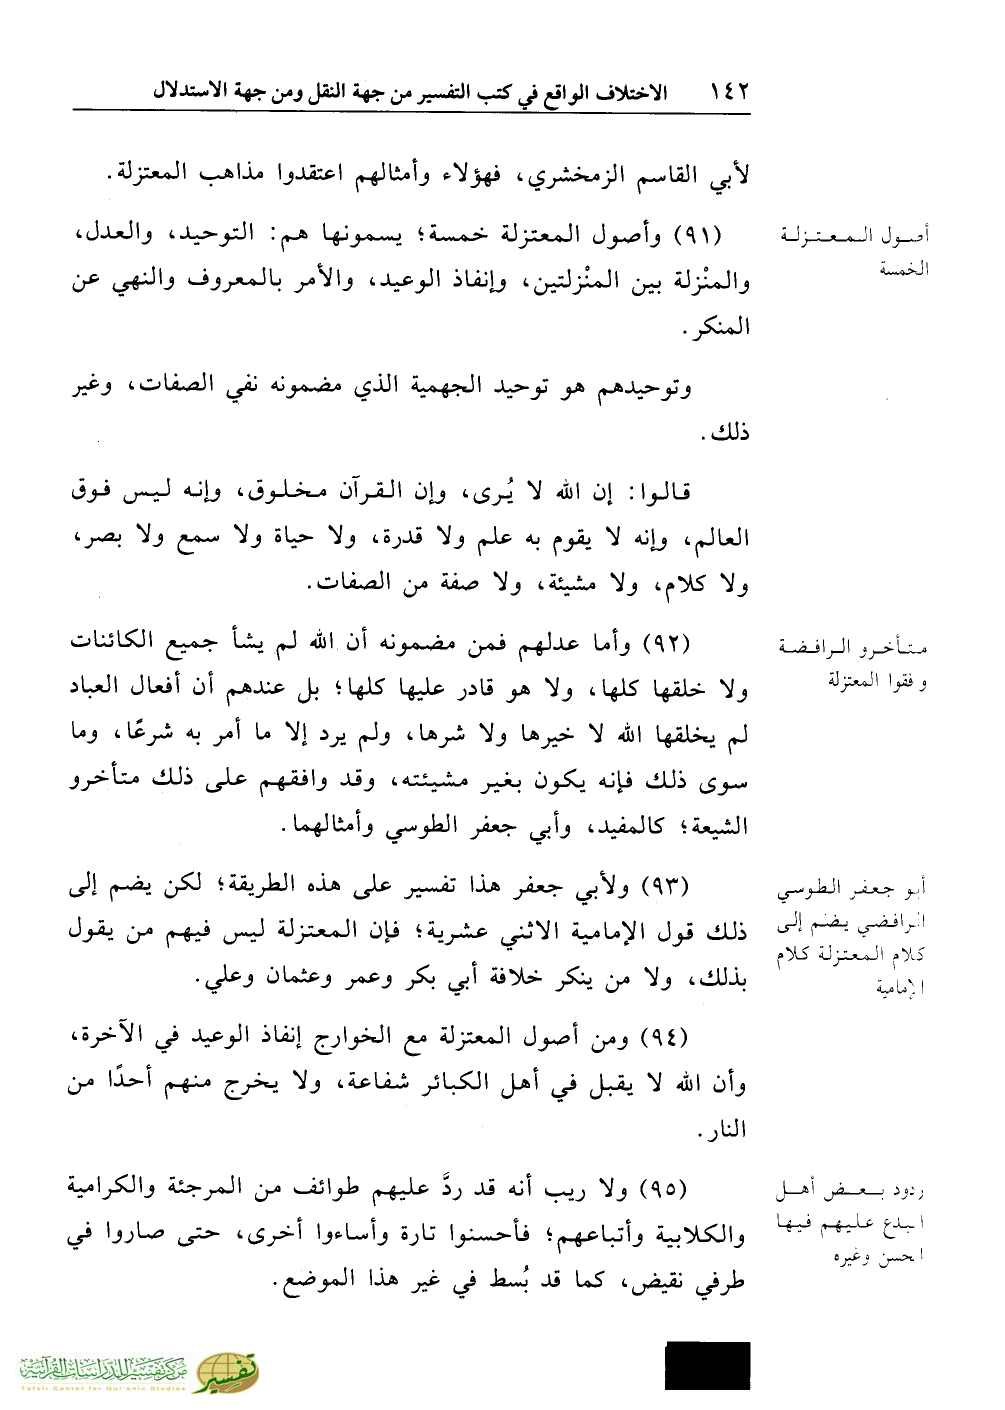 ١٤٢ الاختلاف الواقع في كتب التفسير من جهة النقل ومن جهة الاستدلال
لأبي القاسم الزمخشري، فهؤلاء وأمثالهم اعتقدوا مذاهب المعتزلة.
أصول المعتزلة
الخمسة
(٩١) وأصول المعتزلة خمسة؛ يسمونها هم: التوحيد، والعدل،
والمنْزلة بين المنْزلتين، وإنفاذ الوعيد، والأمر بالمعروف والنهي عن
المنكر.
وتوحيدهم هو توحيد الجهمية الذي مضمونه نفي الصفات، وغير
ذلك.
قالوا: إن الله لا يُرى، وإن القرآن مخلوق، وإنه ليس فوق
العالم، وإنه لا يقوم به علم ولا قدرة، ولا حياة ولا سمع ولا بصر،
ولا كلام، ولا مشيئة، ولا صفة من الصفات.
متأخرو الرافضة
وفقوا المعتزلة
(٩٢) وأما عدلهم فمن مضمونه أن الله لم يشأ جميع الكائنات
ولا خلقها كلها، ولا هو قادر عليها كلها؛ بل عندهم أن أفعال العباد
لم يخلقها الله لا خيرها ولا شرها، ولم يرد إلا ما أمر به شرعًا، وما
سوى ذلك فإنه يكون بغير مشيئته، وقد وافقهم على ذلك متأخرو
الشيعة؛ كالمفيد، وأبي جعفر الطوسي وأمثالهما.
أبو جعفر الطوسي
الرافضي يضم إلى
كلام المعتزلة كلام
الإمامية
(٩٣) ولأبي جعفر هذا تفسير على هذه الطريقة؛ لكن يضم إلى
ذلك قول الإمامية الاثني عشرية؛ فإن المعتزلة ليس فيهم من يقول
بذلك، ولا من ينكر خلافة أبي بكر وعمر وعثمان وعلي.
(٩٤) ومن أصول المعتزلة مع الخوارج إنفاذ الوعيد في الآخرة،
وأن الله لا يقبل في أهل الكبائر شفاعة، ولا يخرج منهم أحدًا من
النار.
ردود بعض أهل
البدع عليهم فيها
الحسن وغيره
(٩٥) ولا ريب أنه قد ردَّ عليهم طوائف من المرجئة والكرامية
والكلابية وأتباعهم؛ فأحسنوا تارة وأساءوا أخرى، حتى صاروا في
طرفي نقيض، كما قد بُسط في غير هذا الموضع.
مركز تفسير للدراسات القرآنية
Tafsir Center for Qur'anic Studies
تفسير